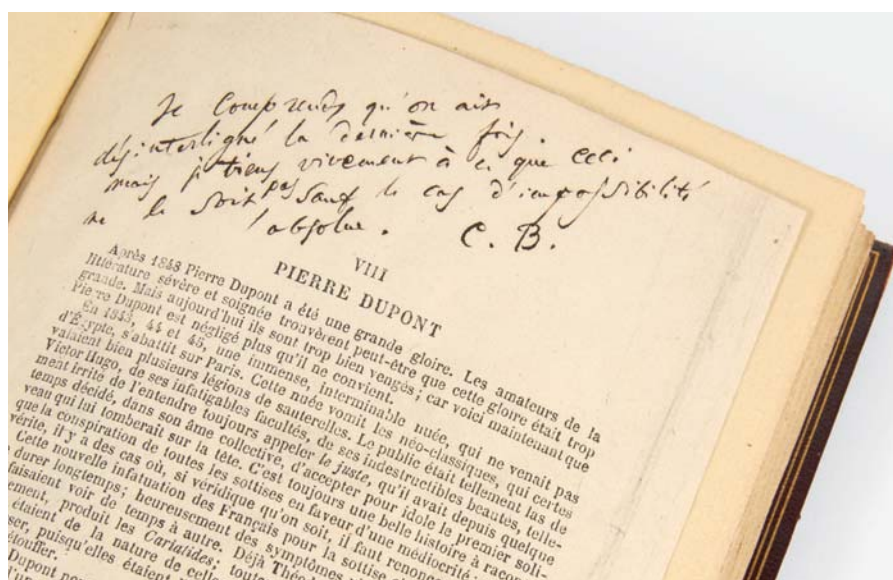 Je comprends qu'on ait
désinterligné la dernière fois.
mais je tiens vivement à ce que ceci
ne le soit pas sauf le cas d'impossibilité
absolue. C. B.
VIII
PIERRE DUPONT
Après 1848 Pierre Dupont a été une grande gloire. Les amateurs de la
littérature sévère et soignée trouvèrent peut-être que cette gloire était trop
grande. Mais aujourd'hui ils sont trop bien vengés; car voici maintenant que
Pierre Dupont est négligé plus qu'il ne convient.
En 1843, 44 et 45, une immense, interminable nuée, qui ne venait pas
d'Égypte, s'abattit sur Paris. Cette nuée vomit les néo-classiques, qui certes
valaient bien plusieurs légions de sauterelles. Le public était tellement las de
Victor Hugo, de ses infatigables facultés, de ses indestructibles beautés, telle-
ment irrité de l'entendre toujours appeler le juste, qu'il avait depuis quelque
temps décidé, dans son âme collective, d'accepter pour idole le premier soli-
veau qui lui tomberait sur la tête. C'est toujours une belle histoire à racon
que la conspiration de toutes les sottises en faveur d'une médiocrité;
vérité, il y a des cas où, si véridique qu'on soit, il faut renonce
Cette nouvelle infatuation des Français pour la sottise
durer longtemps; heureusement des symptômes
faisaient voir de temps à autre. Déjà Théo
ement, produit les Cariatides; toute
étaient de la nature de celle
ser, puisqu'elles étaient
étouffer.
Dupont